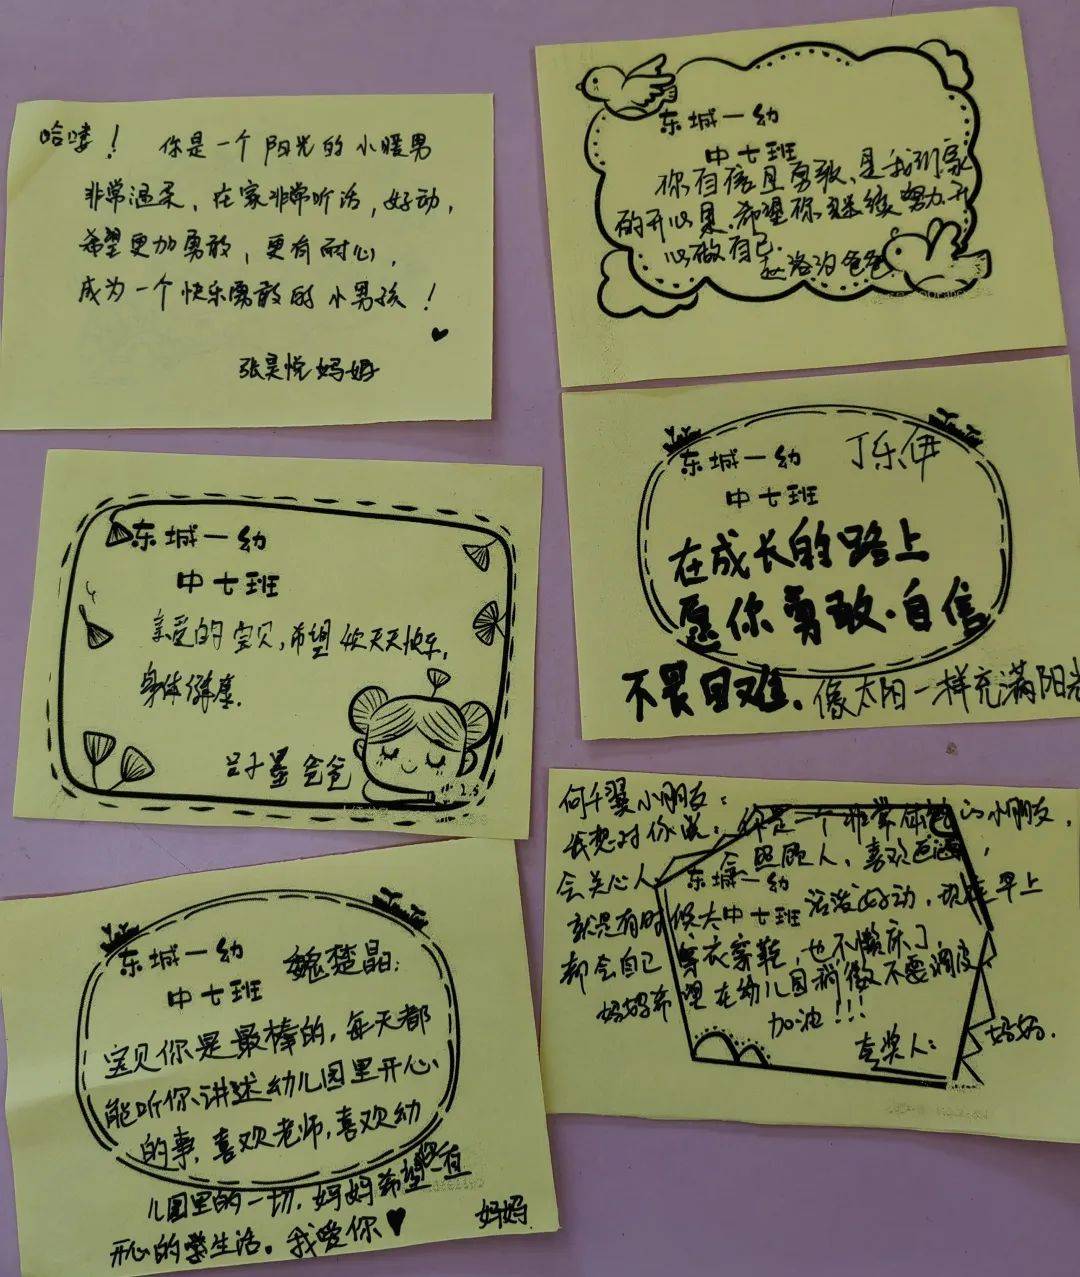 哈喽！ 你是一个阳光的小暖男
非常温柔，在家非常听话，好动，
希望更加勇敢，更有耐心，
成为一个快乐勇敢的小男孩！
张昊悦妈妈
东城一幼
中七班
你自信且勇敢、是我们家
的开心果.希望你继续努力.开
心做自己.
爸爸
东城一幼 丁乐伊
中七班
在成长的路上
愿你勇敢.自信
不畏困难.像太阳一样充满阳光
东城一幼
中七班
亲爱的宝贝,希望你天天快乐,
身体健康.
吕子墨爸爸
何千翼小朋友:
我想对你说: 你是一个非常体贴的小朋友,
会关心人、会照顾人、喜欢画画,
东城一幼
就是有时候太 活泼好动,现在早上
中七班
都会自己穿衣穿鞋,也不懒床了
妈妈希望在幼儿园稍微不要调皮
加油!!!
妈妈.
东城一幼 魏楚晶:
中七班
宝贝你是最棒的,每天都
能听你讲述幼儿园里开心
的事.喜欢老师,喜欢幼
儿园里的一切.妈妈希望
开心的学生活。我爱你♥
妈妈